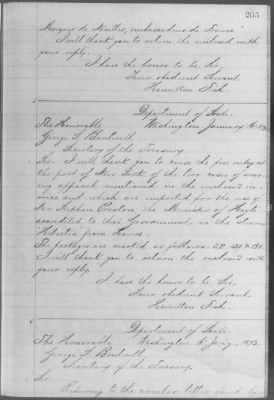 265
Marquis de Noailles, ambassadeur de France
I will thank you to return the enclosed with
your reply.
I have the honor to be, Sir,
Your obedient Servant.
Hamilton Fish.
Department of State
The Honorable Washington January 16,
George S. Boutwell
Secretary of the Treasury
Sir. I will thank you to cause the free entry at
the port of New York of the two cases of wear-
ing apparel mentioned in the enclosed in-
voice and which are imported for the use of
Mr. Stephen Preston, the Minister of Hayti
accredited to this Government, in the steamer
from Havre.
The packages are marked as follows:
I will thank you to return the enclosed with
your reply.
I have the honor to be, Sir,
Your obedient Servant.
Hamilton Fish.
Department of State
The Honorable Washington 16 Jan'y. 1873.
George S. Boutwell,
Secretary of the Treasury.
Sir.
Referring to the circular letter, by